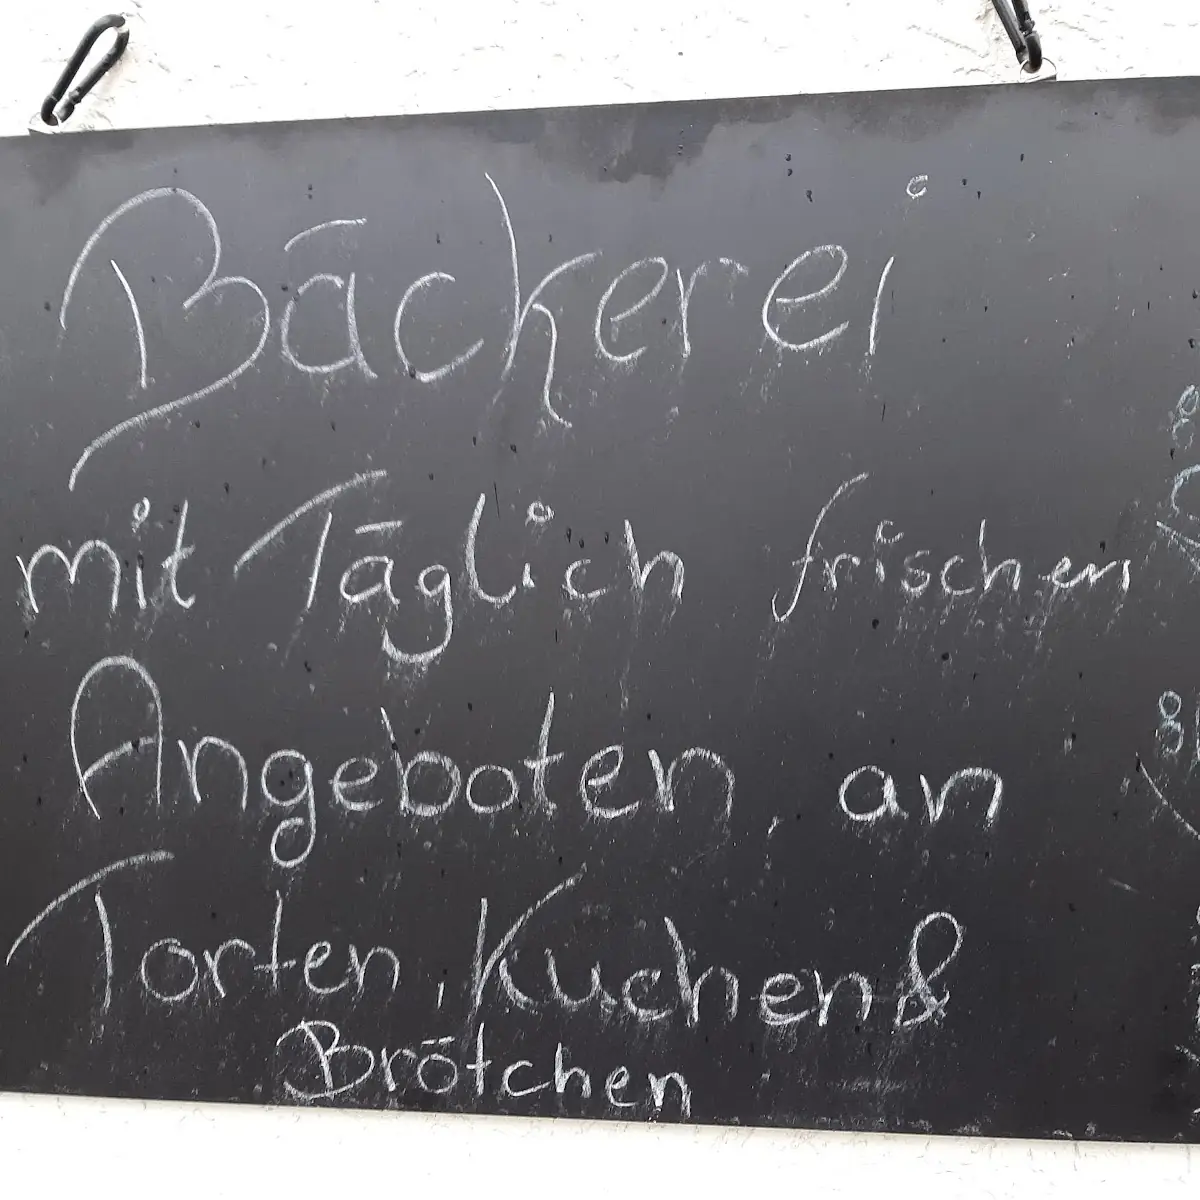 Bäckerei
mit Täglich frischen
Angeboten, an
Torten, Kuchen &
Brötchen